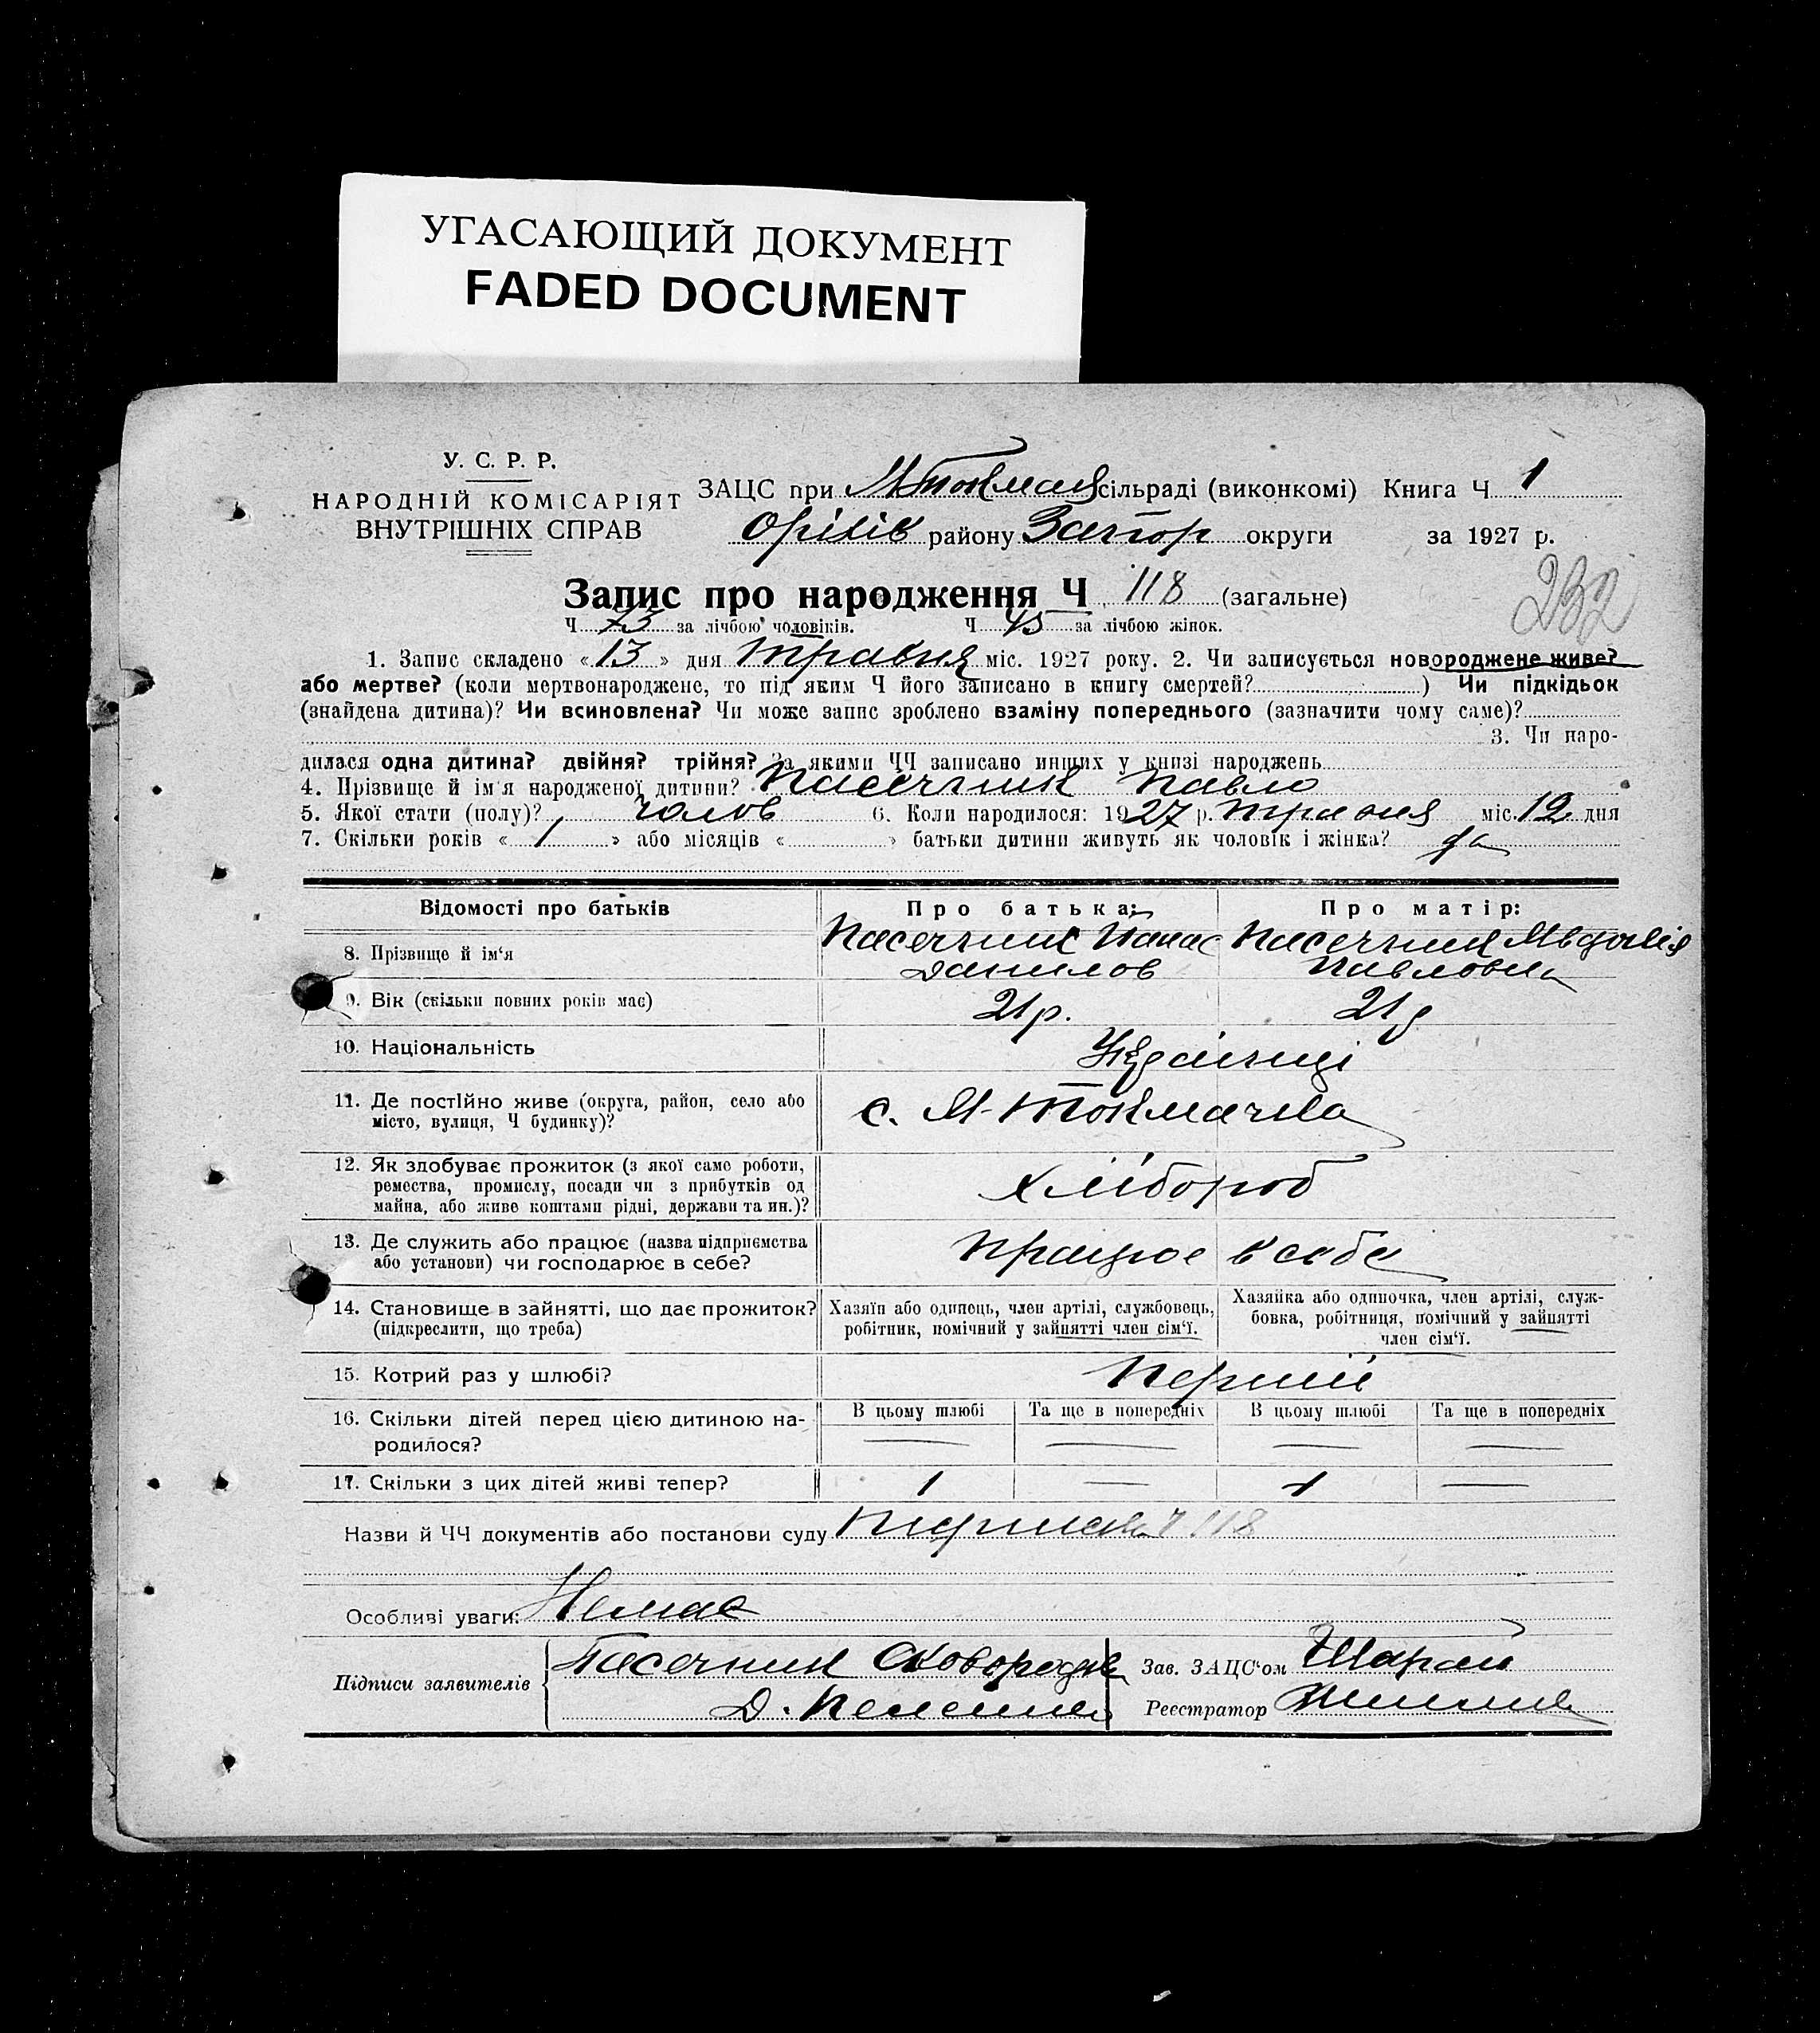 УГАСАЮЩИЙ ДОКУМЕНТ
FADED DOCUMENT
У. С. Р. Р.
НАРОДНІЙ КОМІСАРІЯТ
ВНУТРІШНІХ СПРАВ
ЗАЦС при М Токмач сільраді (виконкомі) Книга Ч 1
Оріхів району Запор округи за 1927 р.
232
Запис про народження Ч 118 (загальне)
Ч 73 за лічбою чоловіків. Ч 45 за лічбою жінок.
1. Запис складено «13» дня травня міс. 1927 року. 2. Чи записується новороджене живе?
або мертве? (коли мертвонароджене, то під яким Ч його записано в книгу смертей?) Чи підкідьок
(знайдена дитина)? Чи всиновлена? Чи може запис зроблено взаміну попереднього (зазначити чому саме)?
3. Чи наро-
дилася одна дитина? двійня? трійня? За якими ЧЧ записано инших у книзі народжень
4. Прізвище й ім'я народженої дитини? Пасечник Павло
5. Якої стати (полу)? чолов 6. Коли народилося: 1927 р. травня міс. 12 дня
7. Скільки років «1» або місяців « » батьки дитини живуть як чоловік і жінка? да
Відомості про батьків Про батька: Про матір:
8. Прізвище й ім'я Пасечник Панас Пасечник
Данилов Павловна
9. Вік (скільки повних років має) 21 р. 21 р
10. Національність Українці
11. Де постійно живе (округа, район, село або
місто, вулиця, Ч будинку)? с. М-Токмачка
12. Як здобуває прожиток (з якої саме роботи,
ремества, промислу, посади чи з прибутків од
майна, або живе коштами рідні, держави та ин.)? Хлібороб
13. Де служить або працює (назва підприємства
або установи) чи господарює в себе? Працює в себе
14. Становище в зайнятті, що дає прожиток?
(підкреслити, що треба)
Хазяїн або одинець, член артілі, службовець,
робітник, помічний у зайнятті член сім'ї.
Хазяйка або одиночка, член артілі, служ-
бовка, робітниця, помічний у зайнятті
член сім'ї.
15. Котрий раз у шлюбі? Перший
16. Скільки дітей перед цією дитиною на-
родилося?
В цьому шлюбі Та ще в попередніх В цьому шлюбі Та ще в попередніх
— — — —
17. Скільки з цих дітей живі тепер? 1 — 1 —
Назви й ЧЧ документів або постанови суду Ч 118
Особливі уваги: Немає
Підписи заявителів Пасечник Сковородка
Д.
Зав. ЗАЦС'ом Шарай
Реєстратор